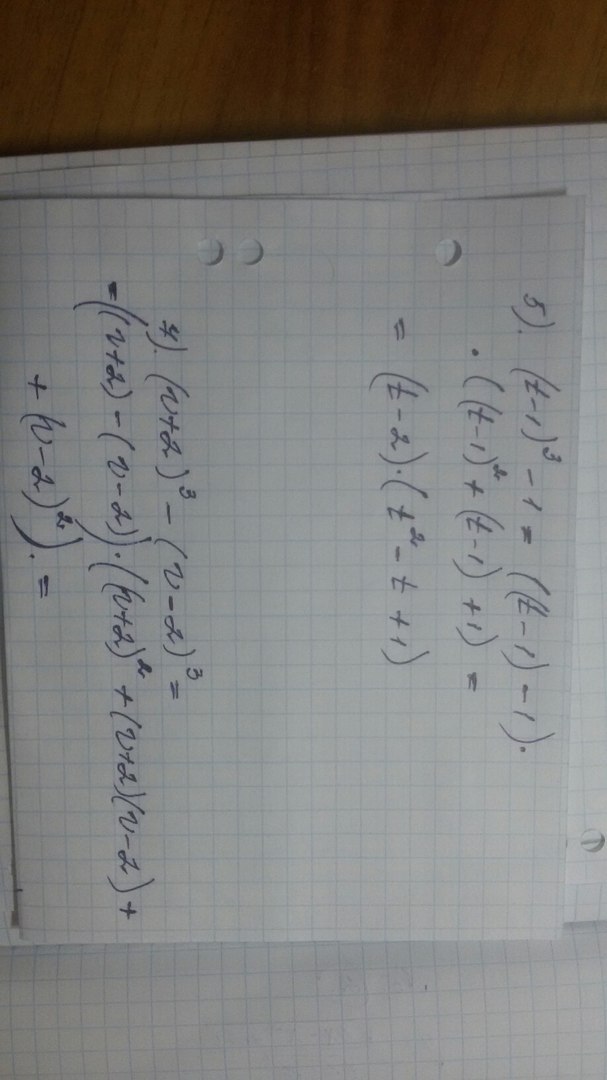 5). (t-1)³ - 1 = ((t-1) - 1).
· ((t-1)² + (t-1) + 1) =
= (t-2)·(t² - t + 1)
4). (v+2)³ - (v-2)³ =
= ((v+2) - (v-2))·((v+2)² + (v+2)(v-2) +
+ (v-2)²). =